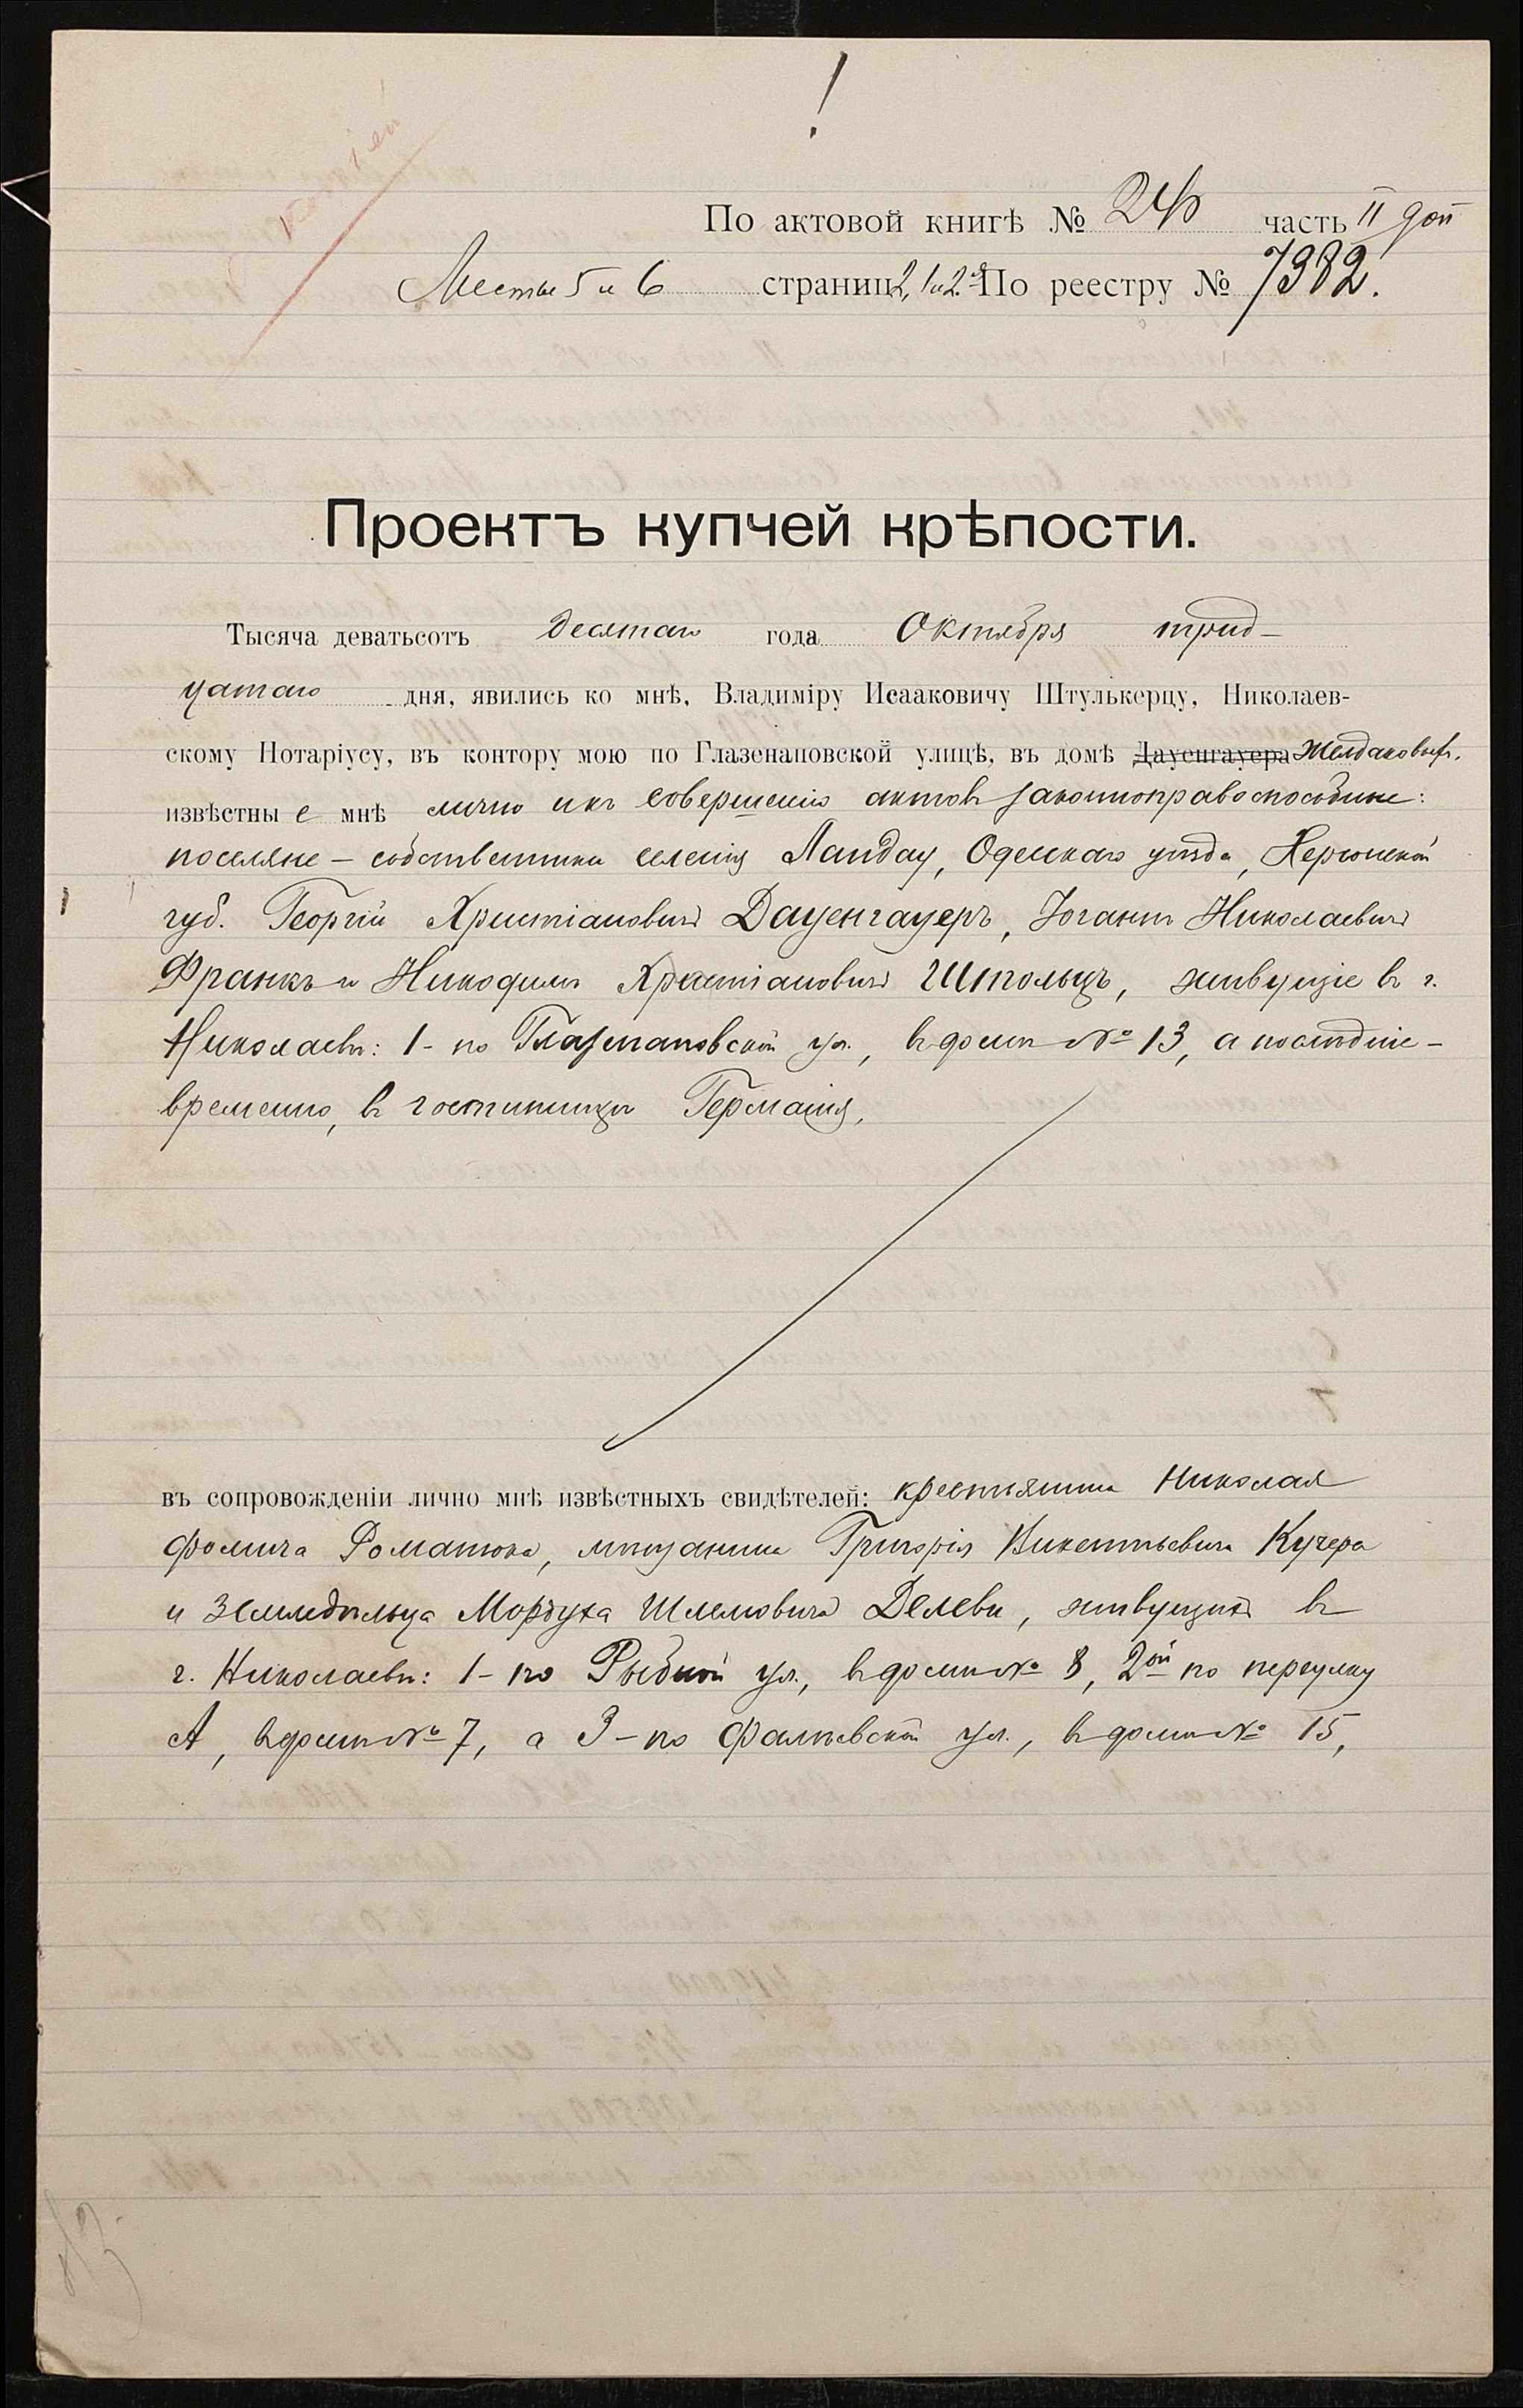 !
По актовой книгѣ № часть II
Листы 5 и 6 страниц. 2, 1 и 2. По реестру № 7982.
Проектъ купчей крѣпости.
Тысяча деватьсотъ десятаго года Октября трид-
цатаго дня, явились ко мнѣ, Владиміру Исааковичу Штулькерцу, Николаев-
скому Нотаріусу, въ контору мою по Глазенаповской улицѣ, въ домѣ Дауенгауера Желдаковыхъ.
извѣстны е мнѣ лично и къ совершенію актовъ законноправоспособные:
поселяне – собственники селенія Ландау, Одесскаго уѣзда, Херсонской
губ. Георгій Христіановичъ Дауенгауеръ, Іоганнъ Николаевичъ
Франкъ и Никодимъ Христіановичъ Штольцъ, живущіе въ г.
Николаевѣ: 1 - по Глазенаповской ул., въ домѣ № 13, а послѣдніе –
временно, въ гостинницѣ Германія,
въ сопровожденіи лично мнѣ извѣстныхъ свидѣтелей: крестьянина Николая
Фомича Романюка, мѣщанина Григорія Викентьевича Кучера
и земледѣльца Мордуха Шлемовича Делеви, живущихъ въ
г. Николаевѣ: 1 - по Рыбной ул., въ домѣ № 8, 2ой по переулку
А, въ домѣ № 7, а 3 - по Фалѣевской ул., въ домѣ № 15,